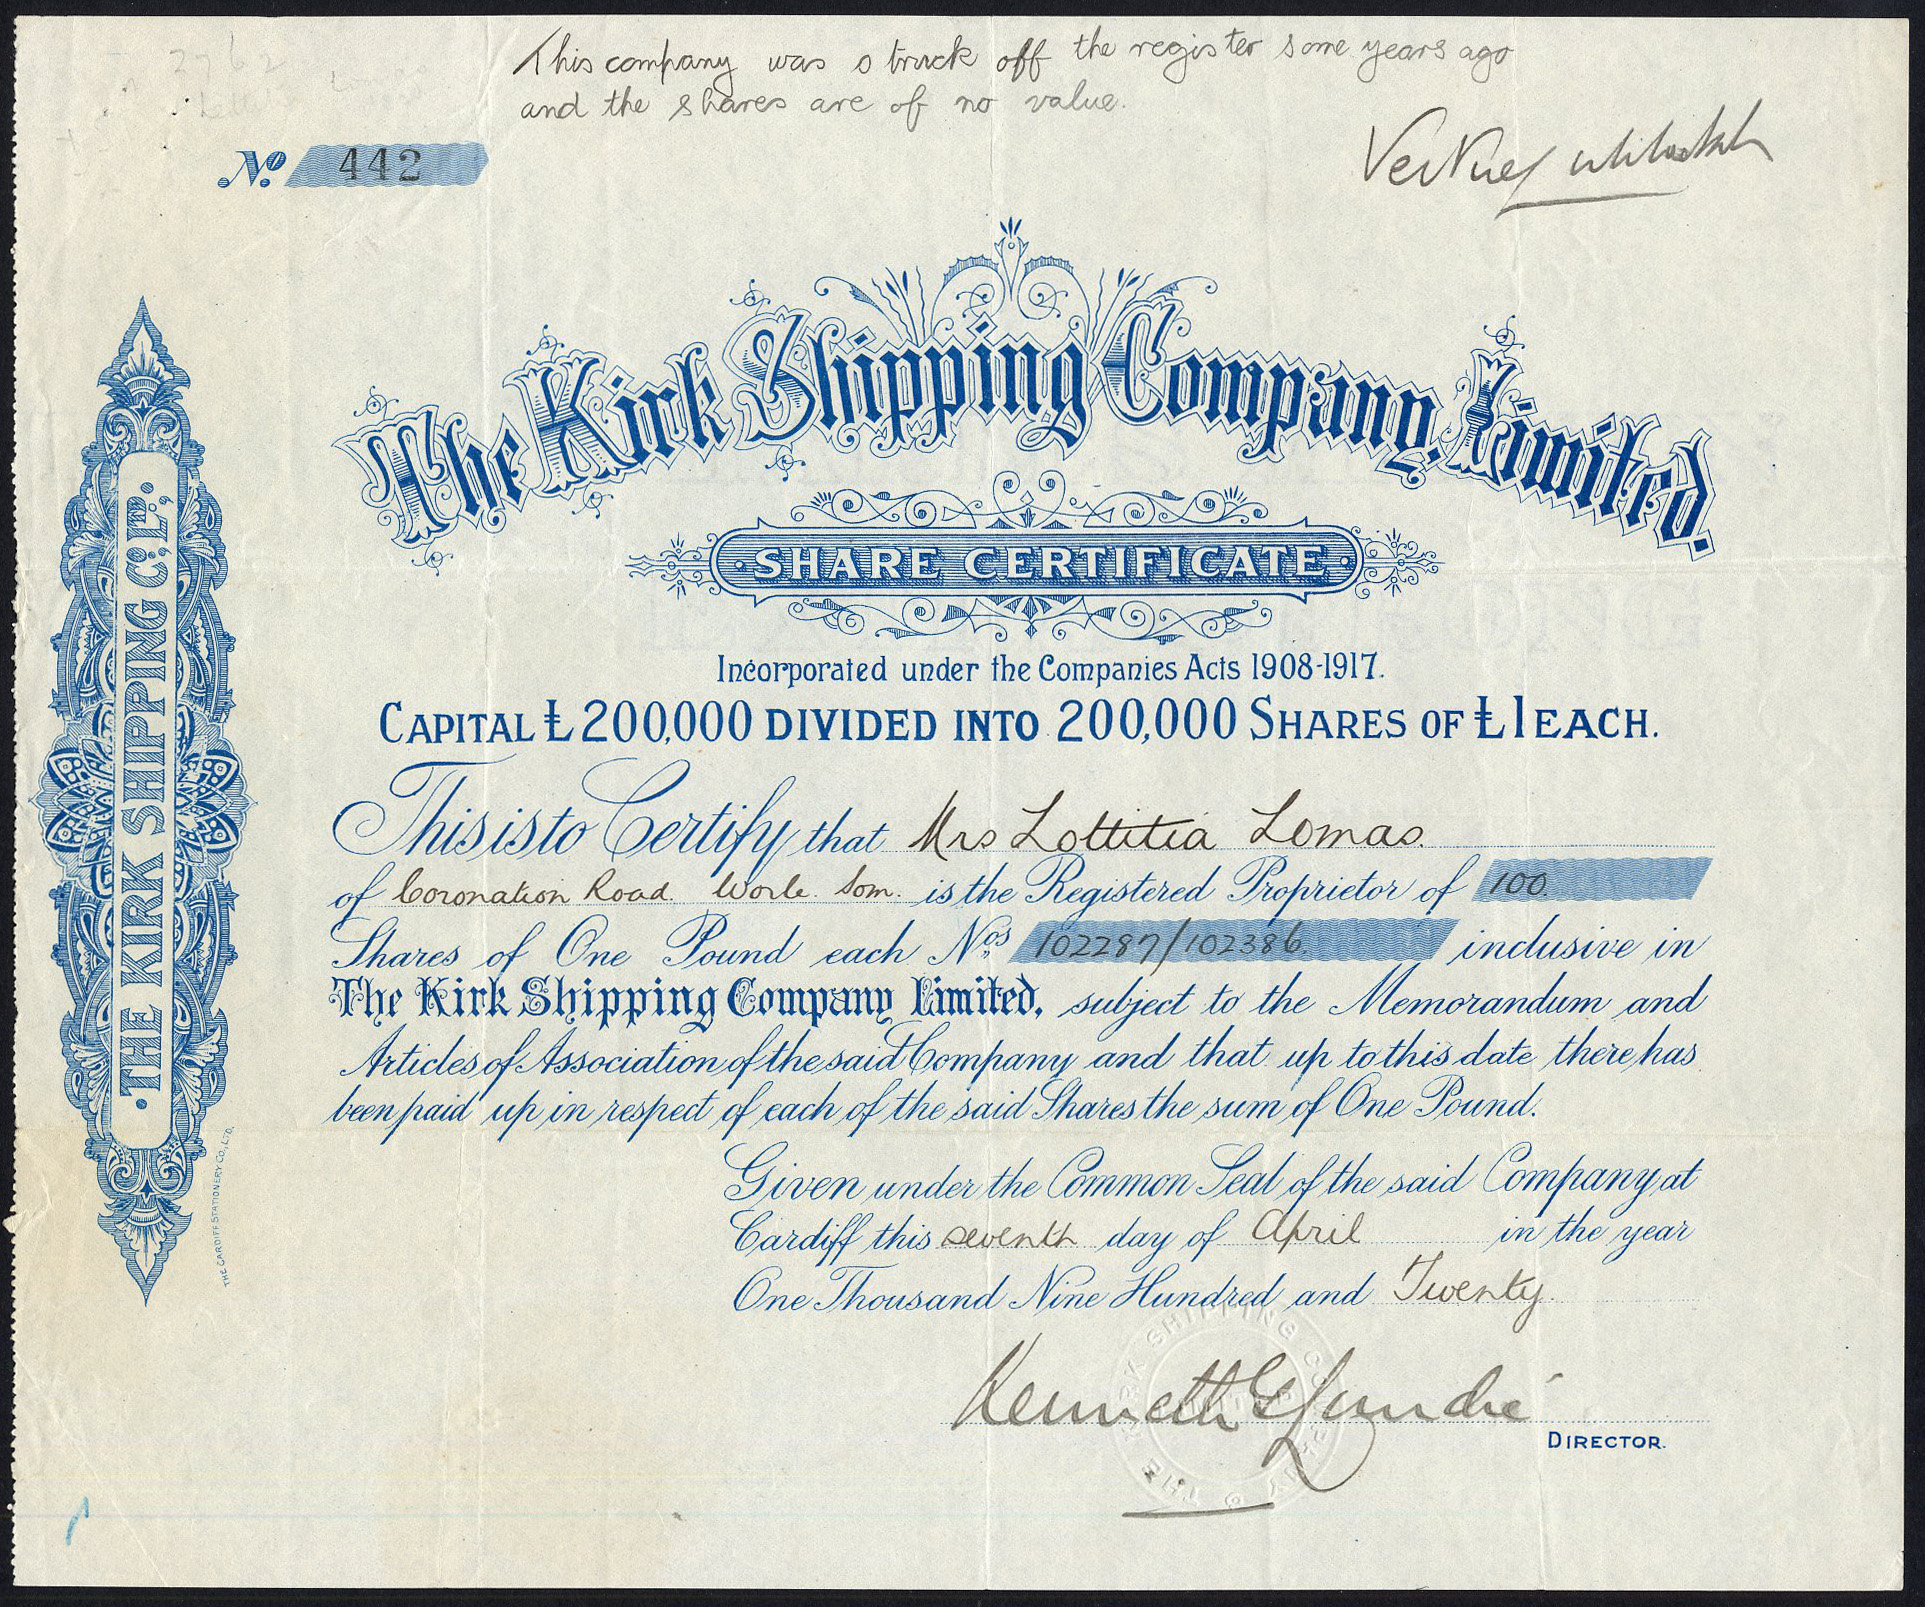 This company was struck off the register some years ago
and the shares are of no value.
No. 442
The Kirk Shipping Company, Limited.
SHARE CERTIFICATE
Incorporated under the Companies Acts 1908-1917.
CAPITAL £200,000 DIVIDED INTO 200,000 SHARES OF £1 EACH.
This is to Certify that Mrs Lottitia Lomas.
of Coronation Road. Worle. Som. is the Registered Proprietor of 100.
Shares of One Pound each Nos. 102287/102386. inclusive in
The Kirk Shipping Company Limited, subject to the Memorandum and
Articles of Association of the said Company and that up to this date there has
been paid up in respect of each of the said Shares the sum of One Pound.
Given under the Common Seal of the said Company at
Cardiff this seventh day of April in the year
One Thousand Nine Hundred and Twenty.
Kenneth
DIRECTOR.
·THE KIRK SHIPPING CO., LTD.
THE CARDIFF STATIONERY CO., LTD.